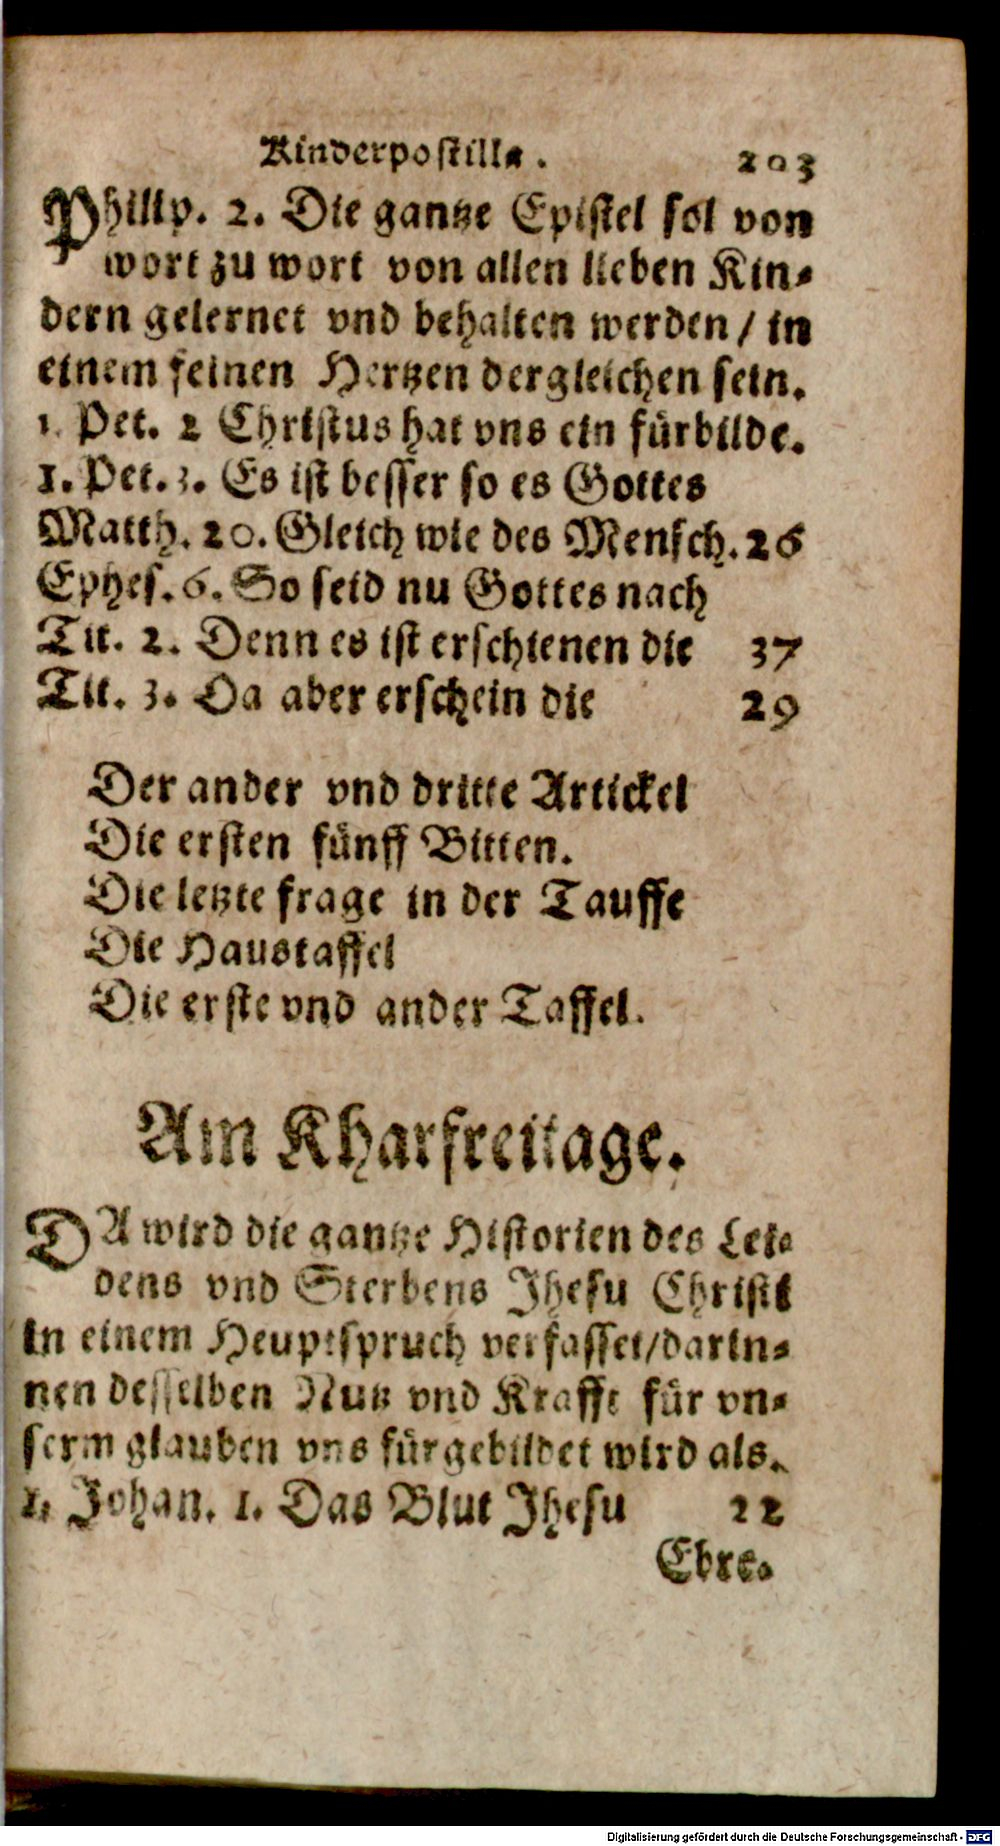 Kinderpostilla. 203
Philip. 2. Die gantze Epistel sol von
wort zu wort von allen lieben Kin⸗
dern gelernet vnd behalten werden / in
einem feinen Hertzen dergleichen sein.
1. Pet. 2 Christus hat vns ein fürbilde.
1. Pet. 3. Es ist besser so es Gottes
Matth. 20. Gleich wie des Mensch. 26
Ephes. 6. So seid nu Gottes nach
Tit. 2. Denn es ist erschienen die 37
Tit. 3. Da aber erschein die 29
Der ander vnd dritte Artickel
Die ersten fünff Bitten.
Die letzte frage in der Tauffe
Die Haustaffel
Die erste vnd ander Taffel.
Am Kharfreitage.
DA wird die gantze Historien des Lei⸗
dens vnd Sterbens Jhesu Christi
in einem Heuptspruch verfasset / darin⸗
nen desselben Nutz vnd Krafft für vn⸗
serm glauben vns fürgebildet wird als.
1. Johan. 1. Das Blut Jhesu 22
Ebre.
Digitalisierung gefördert durch die Deutsche Forschungsgemeinschaft - DFG